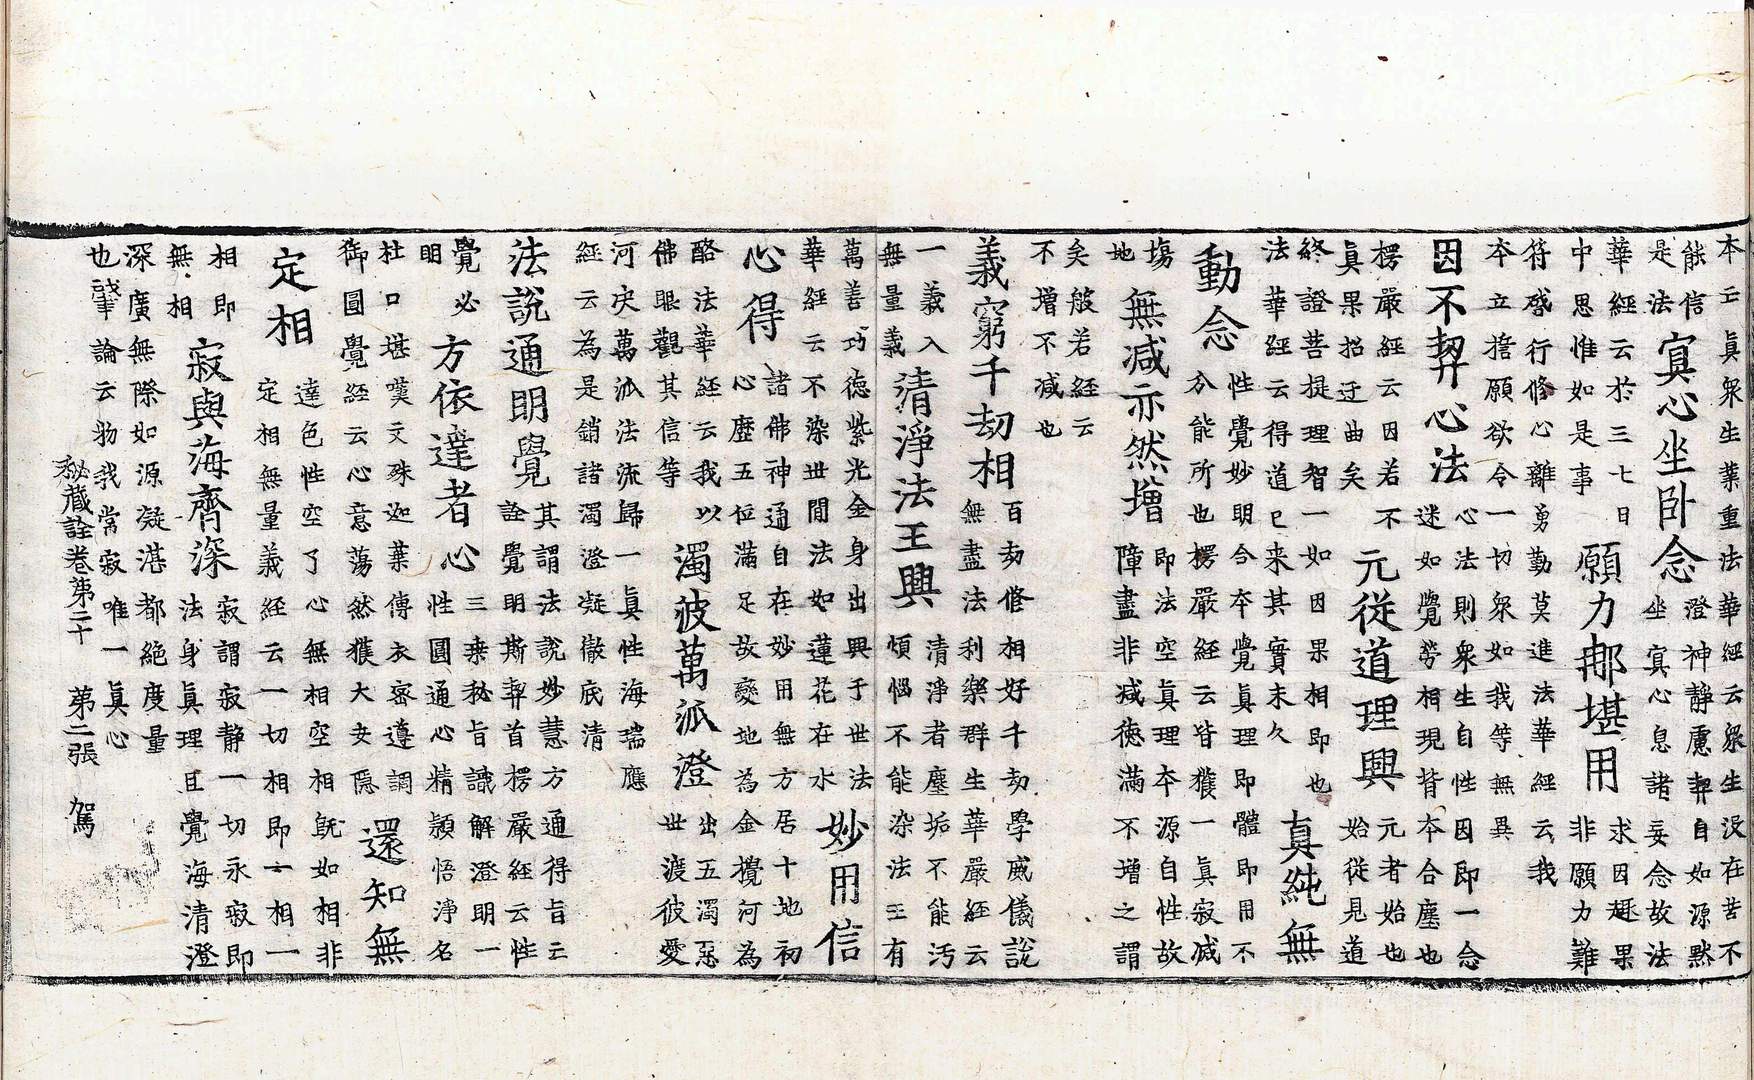 本云眞衆生業重法華經云衆生没在苦不
能信
是法
寘心坐卧念
澄神靜慮契自如源默
坐寘心息諸妄念故法
華經云於三七日
中思惟如是事
願力那堪用
求因趣果
非願力難
符啓行修心離勇勤莫進法華經云我
本立擔願欲令一切衆如我等無異
因不契心法
心法則衆生自性因即一念
迷如覺勞相現皆本合塵也
楞嚴經云因若不
眞果招迂曲矣
元從道理興
元者始也
始從見道
終證菩提理智一如因果相即也
法華經云得道已来其實未久
真純無
動念
性覺妙明合本覺眞理即體即用不
分能所也楞嚴經云皆獲一眞寂滅
塲
地
無减亦然增
即法空眞理本源自性故
障盡非减德滿不增之謂
矣般若經云
不增不减也
義窮千劫相
百劫修相好千劫學威儀説
無盡法利樂群生華嚴經云
一義入
無量義
清淨法王興
清淨者塵垢不能汚
煩惱不能染法王有
萬善巧德紫光金身出興于世法
華經云不染世間法如蓮花在水
妙用信
心得
諸佛神通自在妙用無方居十地初
心歷五位滿足故變地為金攪河為
酪法華經云我以
佛眼觀其信等
濁波萬派澄
出五濁惡
世渡彼愛
河决萬派法流歸一眞性海瑞應
經云為是銷諸濁澄凝徹底清
法説通明覺
其謂法説妙慧方通得旨云
詮覺明斯契首楞嚴經云性
覺必
明
方依達者心
三乗秘旨識解澄明一
性圓通心精頴悟淨名
杜口堪嘆文殊迦葉傳衣密遵調
御圓覺經云心意蕩然獲大安隱
還知無
定相
達色性空了心無相空相既如相非
定相無量義經云一切相即一相一
相即
無相
寂與海齊深
寂謂寂靜一切永寂即
法身眞理且覺海清澄
深廣無際如源凝湛都絕度量
也肇論云物我常寂唯一眞心
秘藏詮卷第二十 第二張 駕